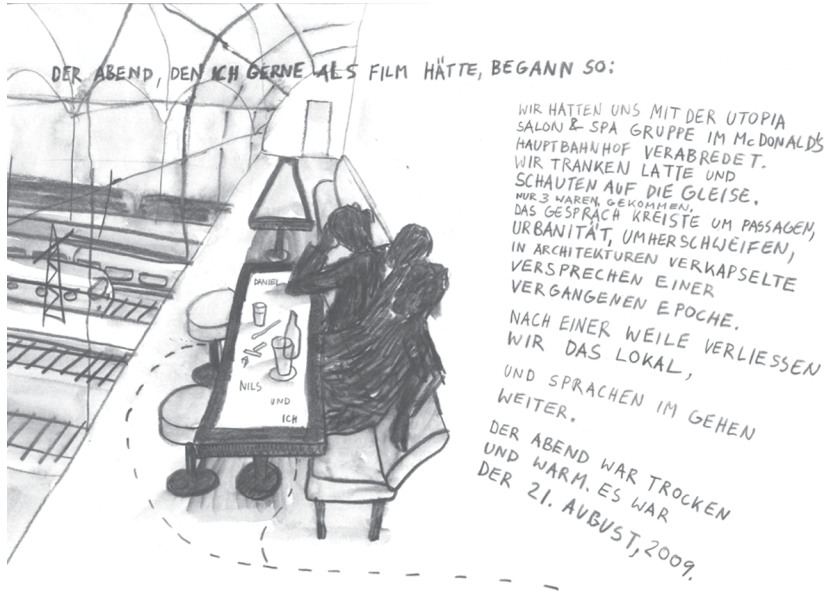 DER ABEND, DEN ICH GERNE ALS FILM HÄTTE, BEGANN SO:
WIR HATTEN UNS MIT DER UTOPIA
SALON & SPA GRUPPE IM McDONALD'S
HAUPTBAHNHOF VERABREDET.
WIR TRANKEN LATTE UND
SCHAUTEN AUF DIE GLEISE.
NUR 3 WAREN GEKOMMEN,
DAS GESPRÄCH KREISTE UM PASSAGEN,
URBANITÄT, UMHERSCHWEIFEN,
IN ARCHITEKTUREN VERKAPSELTE
VERSPRECHEN EINER
VERGANGENEN EPOCHE.
NACH EINER WEILE VERLIESSEN
WIR DAS LOKAL,
UND SPRACHEN IM GEHEN
WEITER.
DER ABEND WAR TROCKEN
UND WARM. ES WAR
DER 21. AUGUST, 2009.
DANIEL
NILS
UND
ICH